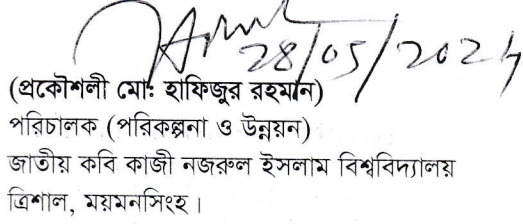 28/05/2024
(প্রকৌশলী মো: হাফিজুর রহমান)
পরিচালক (পরিকল্পনা ও উন্নয়ন)
জাতীয় কবি কাজী নজরুল ইসলাম বিশ্ববিদ্যালয়
ত্রিশাল, ময়মনসিংহ।